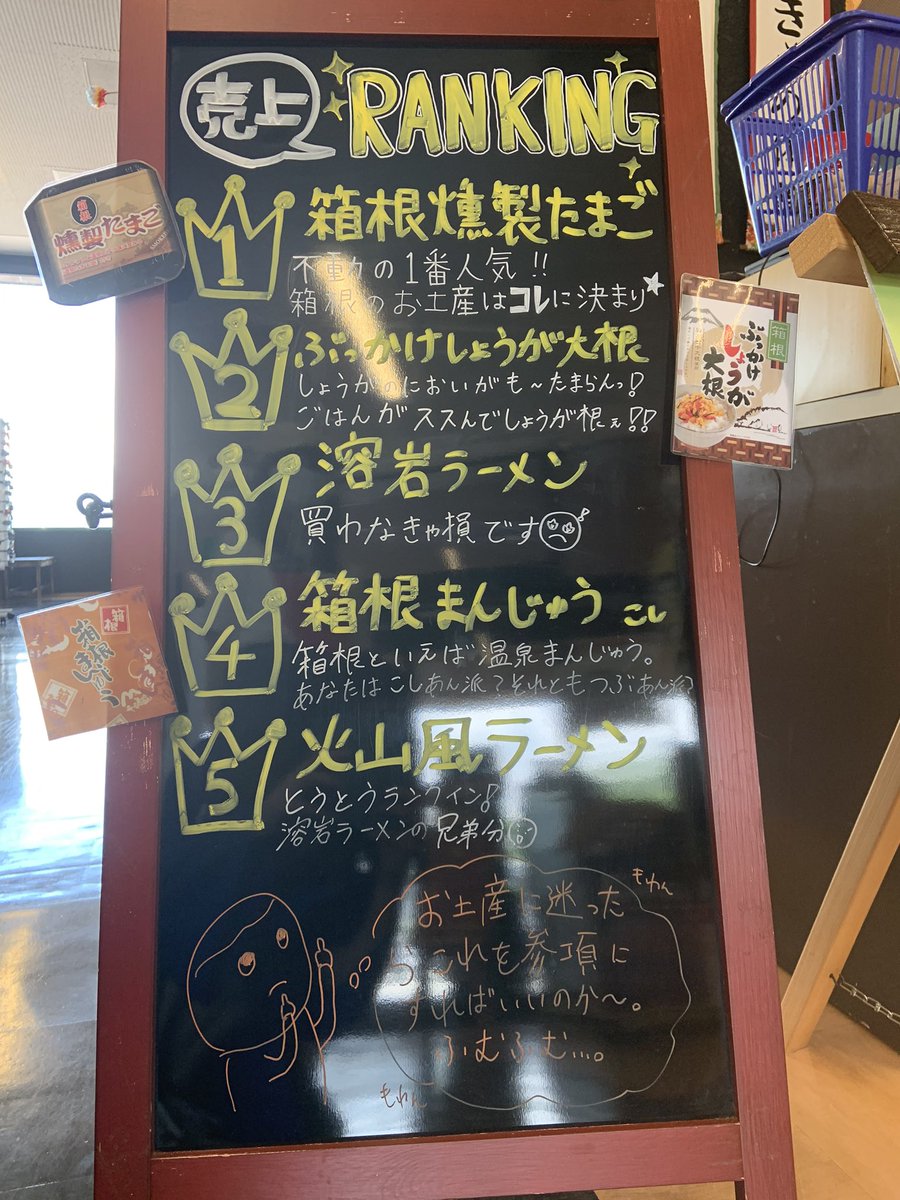 売上 RANKING
1 箱根燻製たまご
不動の1番人気!!
箱根のお土産はコレに決まり
2 ぶっかけしょうが大根
しょうがのにおいがも〜たまらんっ!
ごはんがススんでしょうが根ぇ!!
3 溶岩ラーメン
買わなきゃ損です
4 箱根まんじゅう こし
箱根といえば温泉まんじゅう。
あなたはこしあん派?それともつぶあん派?
5 火山風ラーメン
とうとうランクイン!
溶岩ラーメンの兄弟分
もわん
お土産に迷った
らこれを参項に
すればいいのか〜。
ふむふむ…。
もわん
箱根
燻製たまご
箱根
ぶっかけ
しょうが
大根
箱根
箱根
まんじゅう
さ